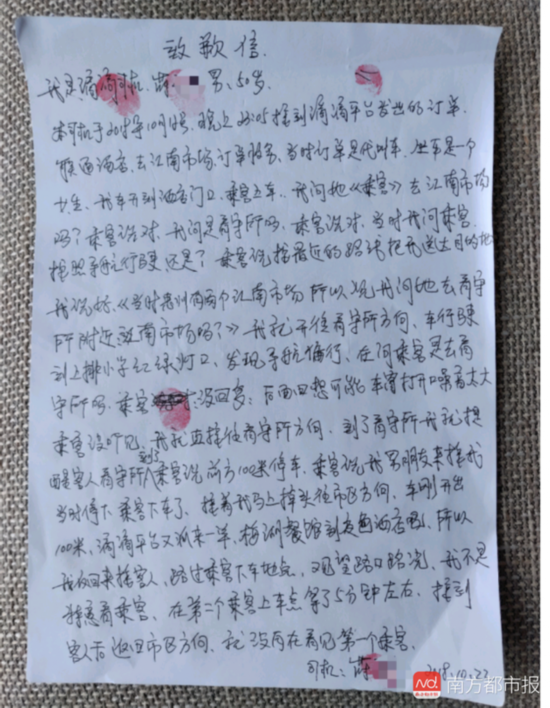 致歉信.
我是滴滴司机. 薛. 男、50岁.
本司机于2018年10月 晚上23:05接到滴滴平台发出的订单.
颐酒店、去江南市场订单服务、当时订单是代叫车. 坐车是一个
女生. 我车开到酒店门口、乘客上车. 我问她《乘客》去江南市场
吗? 乘客说对. 我问是看守所吗. 乘客说对. 当时我问乘客.
按照导航行驶. 还是? 乘客说按最近的路线把我送去目的地
我说好.《当时惠州有两个江南市场 所以我问她去看守
所附近江南市场吗?》我就开往看守所方向、车行驶
到上排小学红绿灯口、发现导航偏行、在问乘客是去看
守所吗. 乘客 没回答: 后面回想可能车窗打开噪音太大
乘客没听见. 我就直接往看守所方向. 到了看守所我就提
醒客人看守所到了 乘客说前方100米停车. 乘客说我男朋友来接我
当时停下乘客下车了. 接着我马上掉头往市区方向. 车刚开出
100米, 滴滴平台又派来一单, 梅湖餐馆到友酒店, 所以
我返回来接客人, 路过乘客下车地点, 观望路口路况, 我不是
特意看乘客. 在第二个乘客上车点等了5分钟左右. 接到
客人后返回市区方向. 就没再在看见第一个乘客.
司机: 薛 2018.10.23
南方都市报